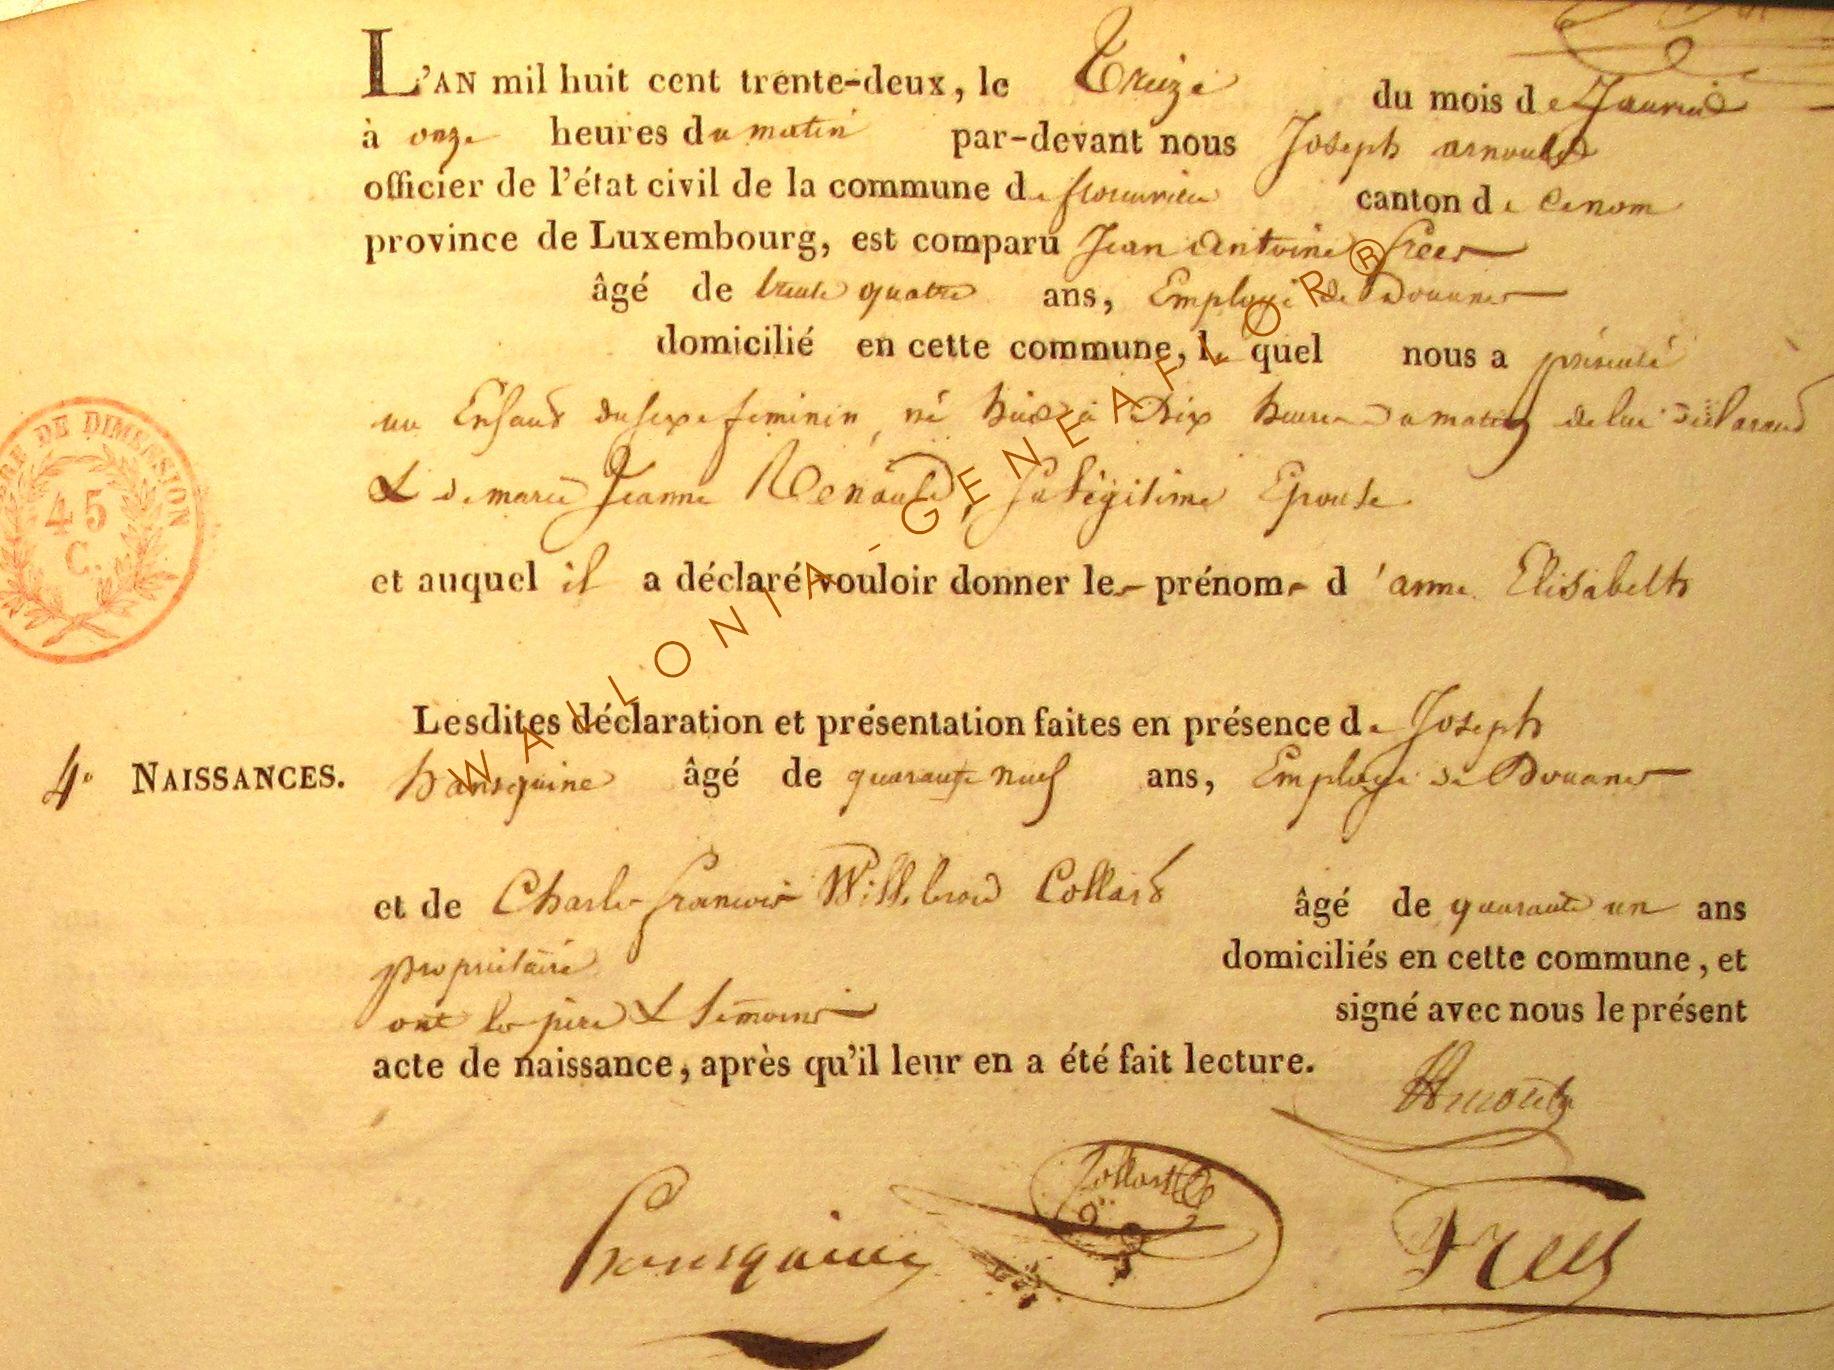 L'AN mil huit cent trente-deux, le Treize du mois de Janvier
à onze heures du matin par-devant nous Joseph arnould
officier de l'état civil de la commune de canton de
province de Luxembourg, est comparu Jean Antoine frees
âgé de trente quatre ans, Employé de Douanes
domicilié en cette commune, le quel nous a présenté
un Enfant du sexe feminin, né hier à Dix heures du matin de lui déclarant
& de marie Jeanne Renauld, sa légitime Epouse
et auquel il a déclaré vouloir donner les prénoms d'anne Elisabeth
Lesdites déclaration et présentation faites en présence de Joseph
4e NAISSANCES. hansquine âgé de quarante neuf ans, Employé de Douanes
et de Charles francois Willebrord Collard âgé de quarante un ans
propriétaire domiciliés en cette commune, et
ont les père & témoins signé avec nous le présent
acte de naissance, après qu'il leur en a été fait lecture.
Hansquine Collart Frees
DE DIMENSION
45
C.
WALLONIA-GENEAFLOR®